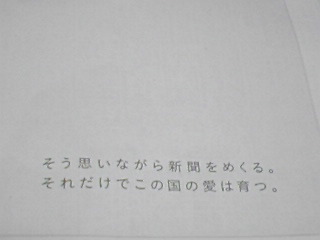 そう思いながら新聞をめくる。
それだけでこの国の愛は育つ。